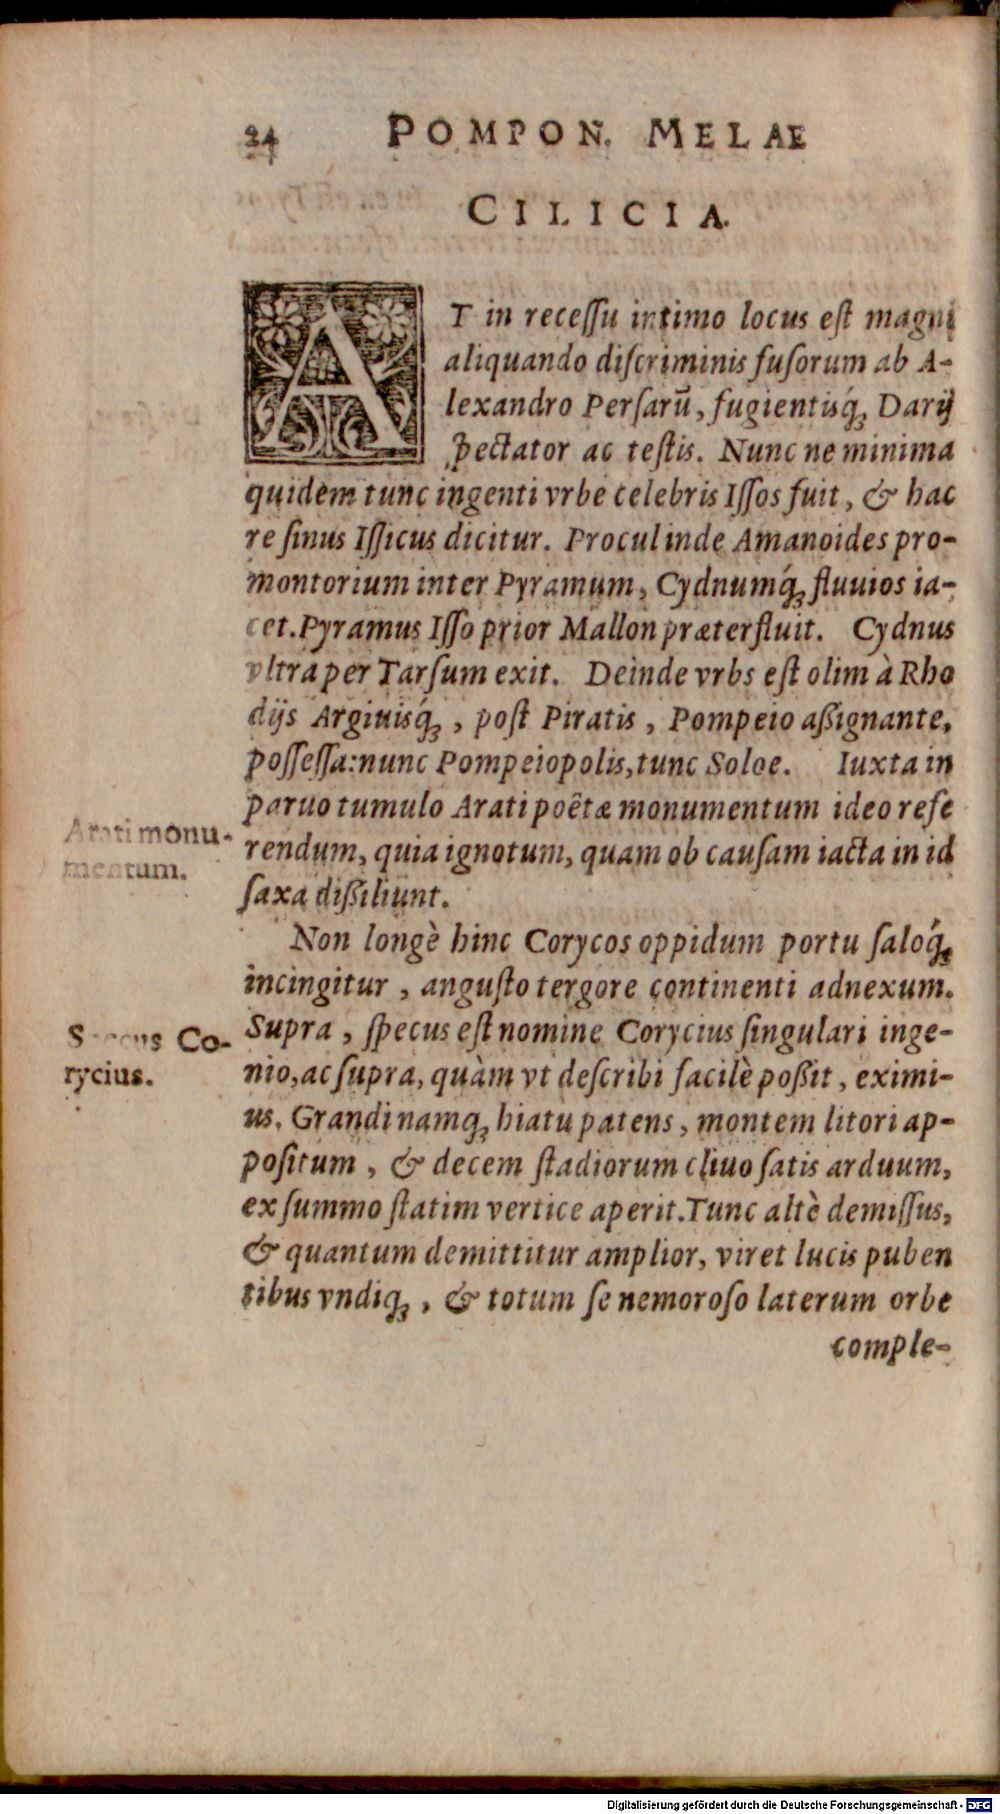 24 POMPON. MELAE
CILICIA.
AT in recessu intimo locus est magni
aliquando discriminis fusorum ab A-
lexandro Persarū, fugientisq́; Darij
spectator ac testis. Nunc ne minima
quidem tunc ingenti vrbe celebris Issos fuit, & hac
re sinus Issicus dicitur. Procul inde Amanoides pro-
montorium inter Pyramum, Cydnumq́; fluuios ia-
cet. Pyramus Isso prior Mallon præterfluit. Cydnus
vltra per Tarsum exit. Deinde vrbs est olim à Rho
dijs Argiuisq́;, post Piratis, Pompeio aßignante,
possessa: nunc Pompeiopolis, tunc Soloe. Iuxta in
paruo tumulo Arati poëtæ monumentum ideo refe
rendum, quia ignotum, quam ob causam iacta in id
saxa dißiliunt.
Arati monu-
mentum.
Non longè hinc Corycos oppidum portu saloq́;
incingitur, angusto tergore continenti adnexum.
Supra, specus est nomine Corycius singulari inge-
nio, ac supra, quàm vt describi facilè poßit, eximi-
us. Grandi namq; hiatu patens, montem litori ap-
positum, & decem stadiorum cliuo satis arduum,
ex summo statim vertice aperit. Tunc altè demissus,
& quantum demittitur amplior, viret lucis puben
tibus vndiq;, & totum se nemoroso laterum orbe
comple-
Specus Co-
rycius.
Digitalisierung gefördert durch die Deutsche Forschungsgemeinschaft - DFG